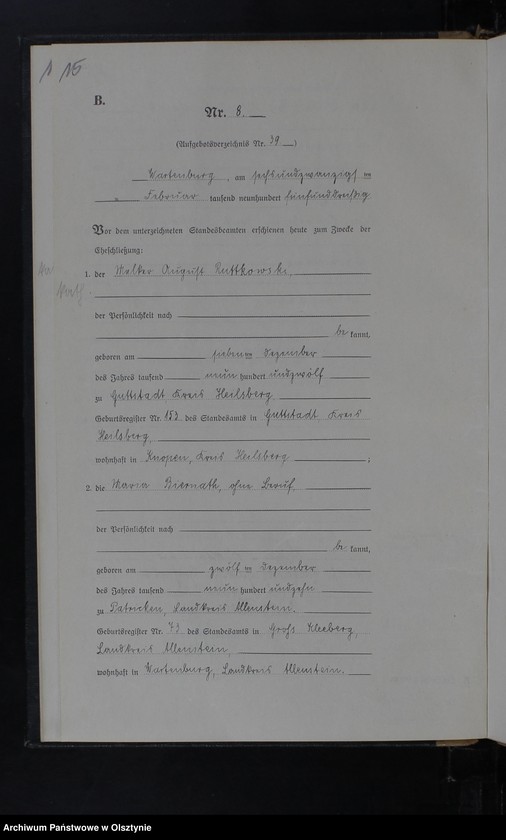 15
B.
Nr. 8.
(Aufgebotsverzeichnis Nr. 39)
Wartenburg, am sechsundzwanzigsten
Februar tausend neunhundert fünfunddreißig
Vor dem unterzeichneten Standesbeamten erschienen heute zum Zwecke der
Eheschließung:
1. der Melker August Ruttkowski,
der Persönlichkeit nach
be kannt,
geboren am siebenten Dezember
des Jahres tausend neun hundert undzwölf
zu Guttstadt Kreis Heilsberg
Geburtsregister Nr. 153 des Standesamts in Guttstadt Kreis
Heilsberg,
wohnhaft in Knopen, Kreis Heilsberg ;
2. die Maria Biernath, ohne Beruf,
der Persönlichkeit nach
be kannt,
geboren am zwölf ten Dezember
des Jahres tausend neun hundert undzehn
zu Patricken, Landkreis Allenstein.
Geburtsregister Nr. 73 des Standesamts in Groß Kleeberg,
Landkreis Allenstein,
wohnhaft in Wartenburg, Landkreis Allenstein.
Archiwum Państwowe w Olsztynie